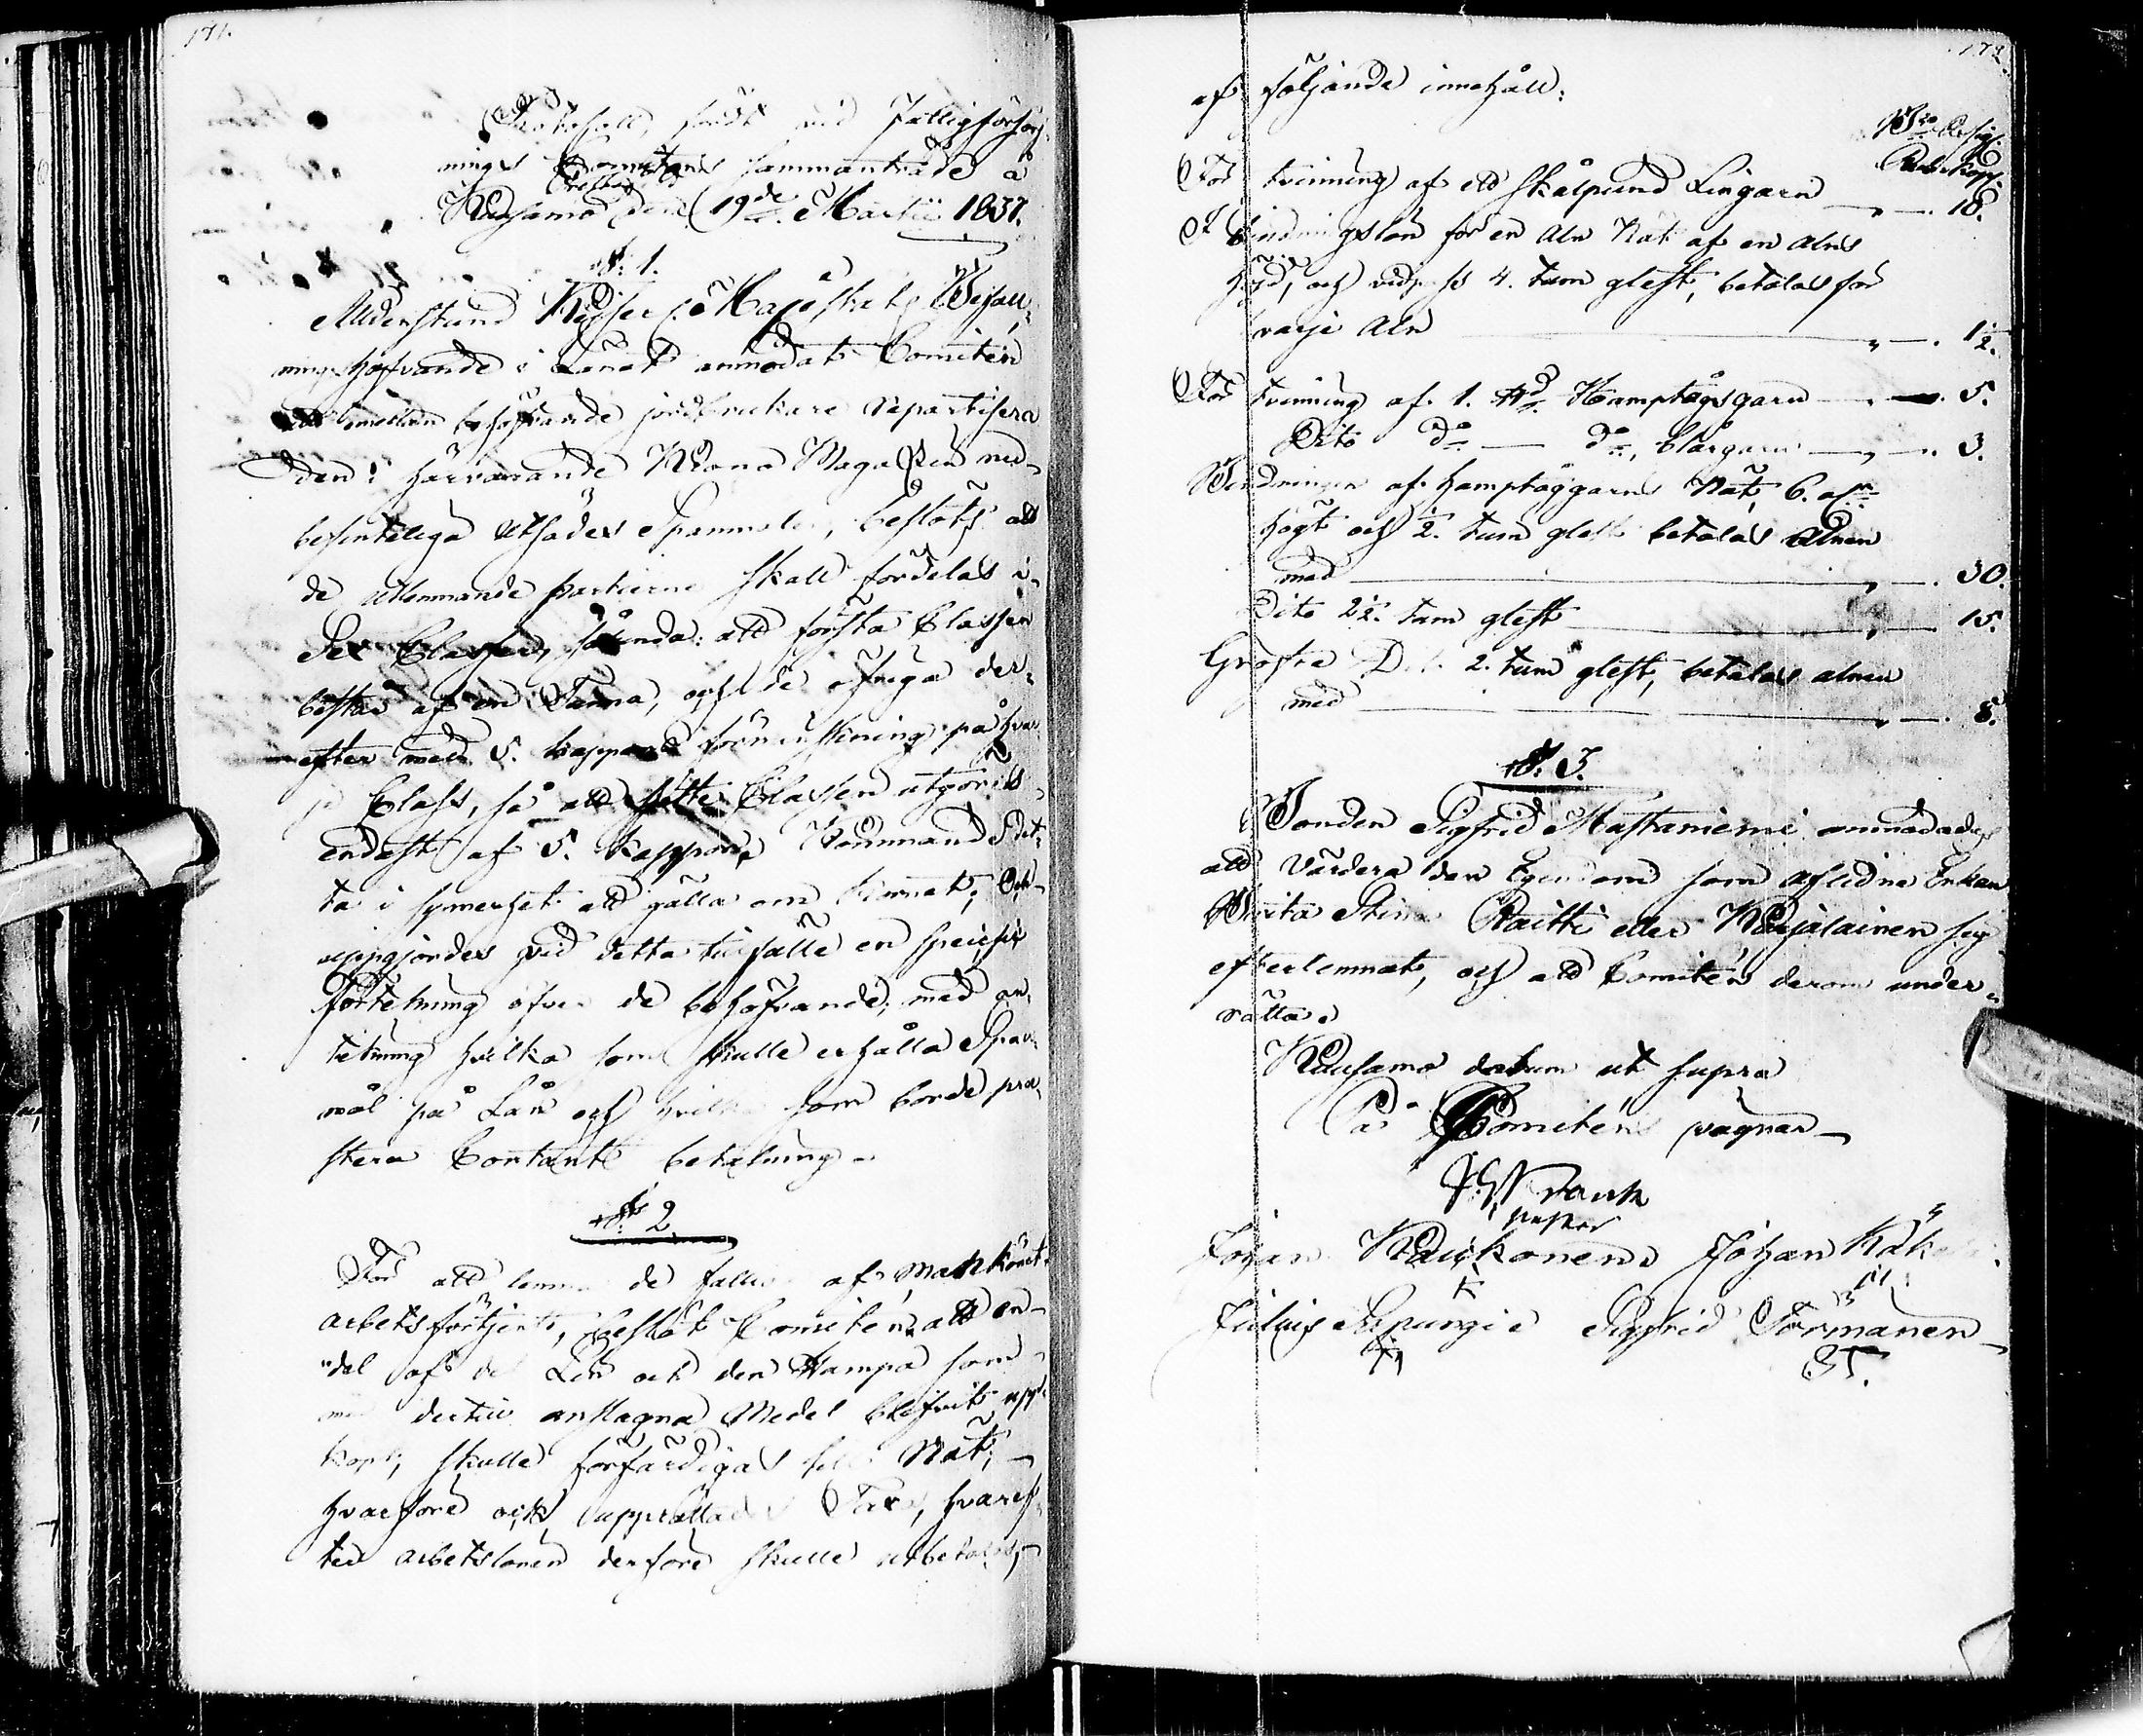 171.
Protokoll, fördt vid Fattigförsörj-
nings Comiténs sammanträde å
Kuusamo Prestgård den 19de Martii 1837.
§. 1.
Alldenstund Kejserl. Majestets Befall-
ningshafvande i Länet anmodat Comitén
att emellan behöfvande jordbrukare repartisera
den i härvarande Krono Magasin
befinteliga utsädes Spannmålen, beslöts att
de utlemnande partierne skall fördelas i
Sex Classer, sålunda: att första Classen
består af en Tunna, och de öfriga der-
efter med 5. kappars förminskning på hvar-
je Class, så att sjette Classen utgöres
endast af 5. kappar, kommande det-
ta i synnerhet att gälla om kornet; och
uppgjordes vid detta tillfälle en specifik
förtekning öfver de behöfvande, med an-
tekning hvilka som skulle erhålla Span-
mål på Lån och hvilka som borde præ-
stera Contant betalning.
§. 2
För att lemna de fattige af Mankönet
arbetsförtjenst, beslöt Comitén att en
del af det Lin och den Hampa som
med dertill anslagna Medel blifvit upp-
köpt, skulle förfärdigas till Nät,
hvarföre ock upprättades Taxe, hvaref-
ter arbetslönen derföre skulle utbetalas,
172.
af följande innehåll:
Bco Assign.
Rub. Kop.
För tvinning af ett skålpund Lingarn — 18.
I Bindningslön för en Aln Nät af en alns
höjd, och vidpass 4. tum glest, betalas för
varje Aln — 1½.
För tvinning af 1. ℔ Hamptågsgarn — 5.
Dito do — do, blårgarn — 3.
Bindningen af hamptåggarns Nät, 6. aln
högt och ½. tum glest betalas Alnen
med — 30.
Dito 2½. tum glest — 15.
Gröfre D:o 2. tum glest, betalas alnen
med — 8.
§. 3.
Bonden Sigfrid Mastaniemi anmodades
att värdera den Egendom som aflidna Enkan
Brita Stina Raitti eller Karjalainen sig
efterlemnat, och att Comitén derom under-
rätta.
Kuusamo datum ut supra
På Comiténs vägnar
Pastor
Johan Kaukonen Johan
Sigfrid Törmänen